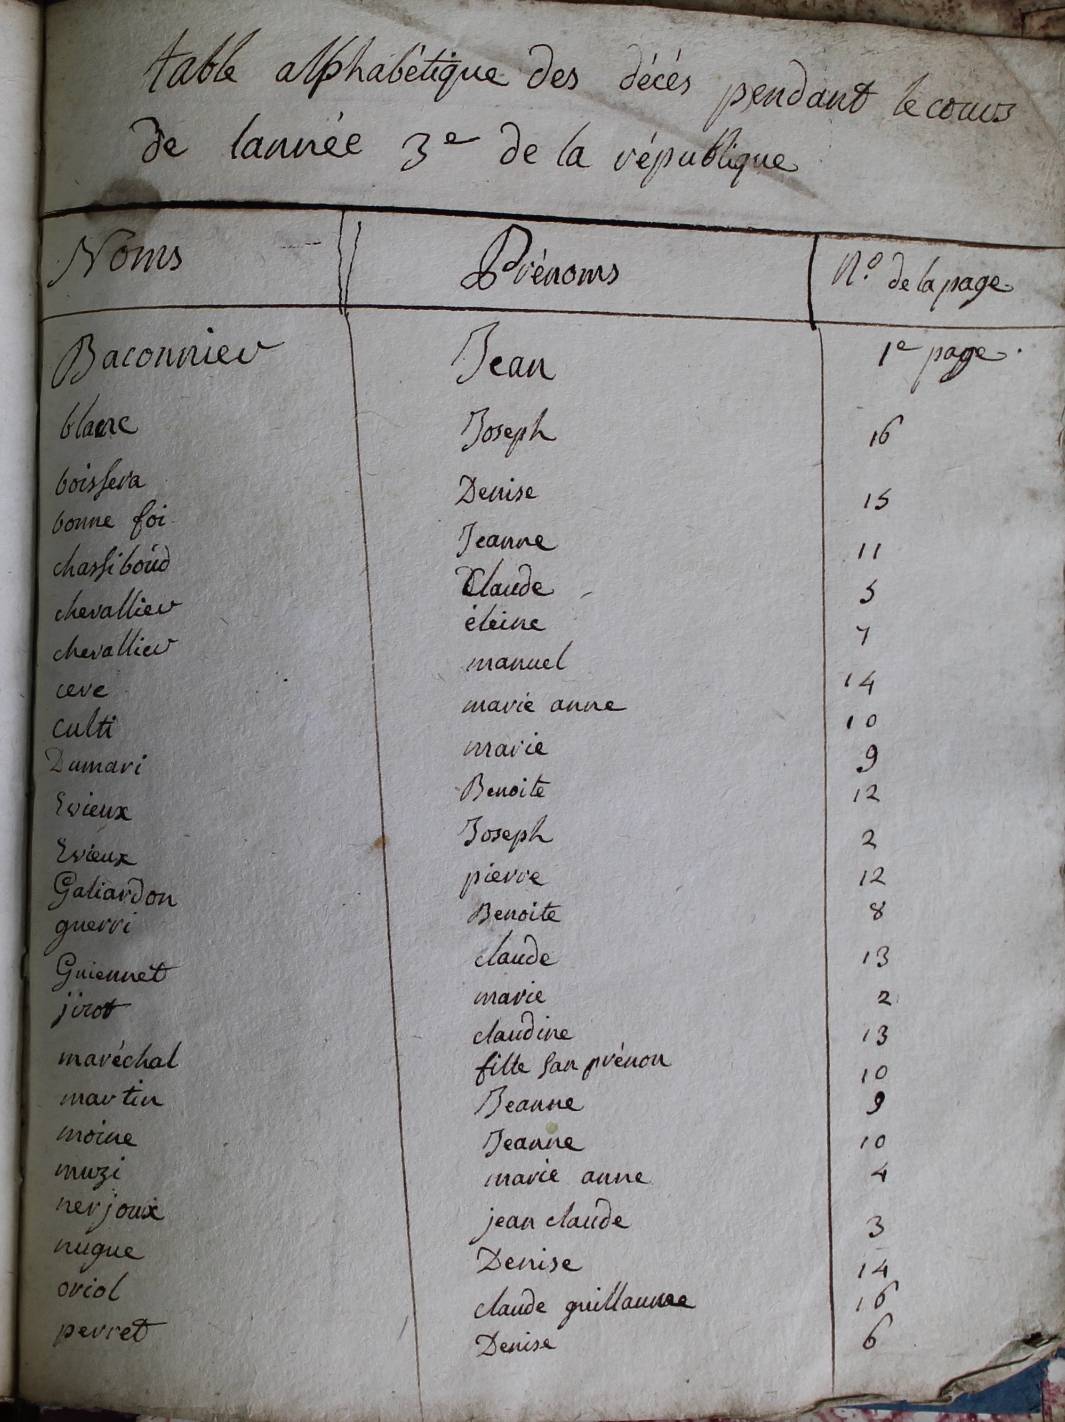 table alphabétique des décés pendant le cours
de lannée 3e de la république
Noms Prénoms N.o de la page
Baconnier Jean 1e page
blanc Joseph 16
boissera Denise 15
bonne foi Jeanne 11
chassiboud Claude 5
chevallier éleine 7
chevallier manuel 14
ceve marie anne 10
culti marie 9
Dumari Benoite 12
Evieux Joseph 2
Evieux pierre 12
Galiardon Benoite 8
guerri claude 13
Guiennet marie 2
jirot claudine 13
maréchal fille san prénon 10
martin Jeanne 9
moine Jeanne 10
muzi marie anne 4
nerjoux jean claude 3
nugue Denise 14
oriol claude guillaume 16
perret Denise 6